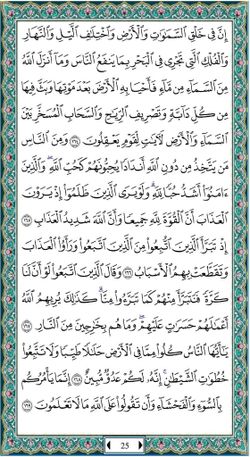 إِنَّ فِي خَلْقِ السَّمَٰوَٰتِ وَالْأَرْضِ وَاخْتِلَٰفِ الَّيْلِ وَالنَّهَارِ
وَالْفُلْكِ الَّتِي تَجْرِي فِي الْبَحْرِ بِمَا يَنفَعُ النَّاسَ وَمَا أَنزَلَ اللَّهُ
مِنَ السَّمَاءِ مِن مَّاءٍ فَأَحْيَا بِهِ الْأَرْضَ بَعْدَ مَوْتِهَا وَبَثَّ فِيهَا
مِن كُلِّ دَابَّةٍ وَتَصْرِيفِ الرِّيَٰحِ وَالسَّحَابِ الْمُسَخَّرِ بَيْنَ
السَّمَاءِ وَالْأَرْضِ لَءَايَٰتٍ لِّقَوْمٍ يَعْقِلُونَ ١٦٤ وَمِنَ النَّاسِ
مَن يَتَّخِذُ مِن دُونِ اللَّهِ أَندَادًا يُحِبُّونَهُمْ كَحُبِّ اللَّهِ ۖ وَالَّذِينَ
ءَامَنُوا أَشَدُّ حُبًّا لِّلَّهِ ۗ وَلَوْ يَرَى الَّذِينَ ظَلَمُوا إِذْ يَرَوْنَ
الْعَذَابَ أَنَّ الْقُوَّةَ لِلَّهِ جَمِيعًا وَأَنَّ اللَّهَ شَدِيدُ الْعَذَابِ ١٦٥
إِذْ تَبَرَّأَ الَّذِينَ اتُّبِعُوا مِنَ الَّذِينَ اتَّبَعُوا وَرَأَوُا الْعَذَابَ
وَتَقَطَّعَتْ بِهِمُ الْأَسْبَابُ ١٦٦ وَقَالَ الَّذِينَ اتَّبَعُوا لَوْ أَنَّ لَنَا
كَرَّةً فَنَتَبَرَّأَ مِنْهُمْ كَمَا تَبَرَّءُوا مِنَّا ۗ كَذَٰلِكَ يُرِيهِمُ اللَّهُ
أَعْمَٰلَهُمْ حَسَرَٰتٍ عَلَيْهِمْ ۖ وَمَا هُم بِخَٰرِجِينَ مِنَ النَّارِ ١٦٧
يَٰأَيُّهَا النَّاسُ كُلُوا مِمَّا فِي الْأَرْضِ حَلَٰلًا طَيِّبًا وَلَا تَتَّبِعُوا
خُطُوَٰتِ الشَّيْطَٰنِ ۚ إِنَّهُ لَكُمْ عَدُوٌّ مُّبِينٌ ١٦٨ إِنَّمَا يَأْمُرُكُم
بِالسُّوءِ وَالْفَحْشَاءِ وَأَن تَقُولُوا عَلَى اللَّهِ مَا لَا تَعْلَمُونَ ١٦٩
25